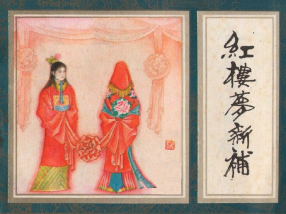 紅樓夢新補